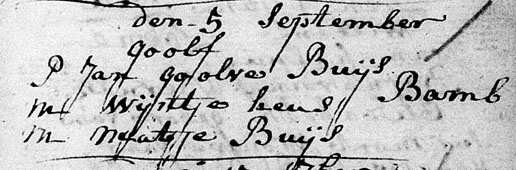 den 5 September
goolf
P Jan goolve Buijs
m Wijntje heus Bamb
m matje Buijs